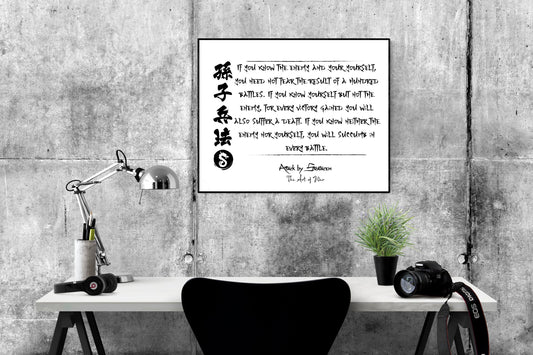 孫子兵法
IF YOU KNOW THE ENEMY AND YOUR YOURSELF,
YOU NEED NOT FEAR THE RESULT OF A HUNDRED
BATTLES. IF YOU KNOW YOURSELF BUT NOT THE
ENEMY, FOR EVERY VICTORY GAINED YOU WILL
ALSO SUFFER A DEAFT. IF YOU KNOW NEITHER THE
ENEMY NOR YOURSELF, YOU WILL SUCCUMB IN
EVERY BATTLE.
Attack by Stratagem
The Art of War
Canon
EOS